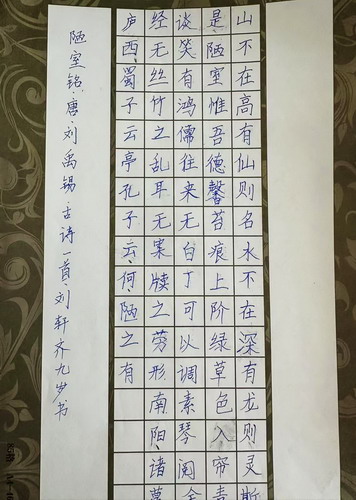 山不在高有仙则名水不在深有龙则灵斯
是陋室惟吾德馨苔痕上阶绿草色入帘青
谈笑有鸿儒往来无白丁可以调素琴阅金
经无丝竹之乱耳无案牍之劳形南阳诸葛
庐西蜀子云亭孔子云何陋之有
陋室铭、唐、刘禹锡、古诗一首、刘轩齐九岁书